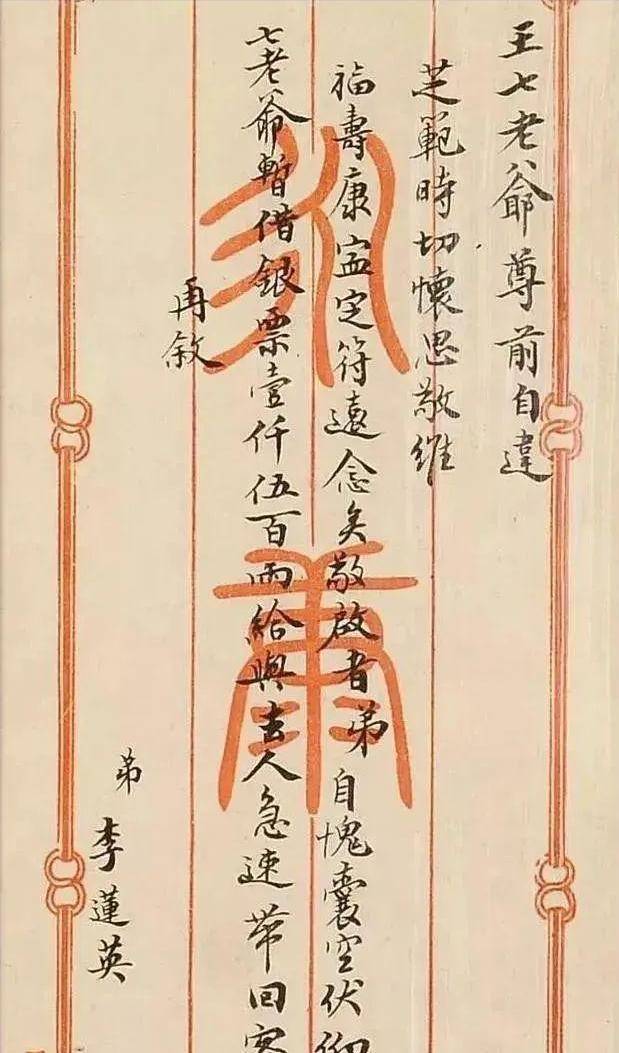 王七老爺尊前自違
芝範時切懷思敬維
福壽康寍定符遠念矣敬啟者弟自愧囊空伏仰
七老爺暫借銀票壹仟伍百兩給與去人急速帶回容
再敘
弟 李蓮英